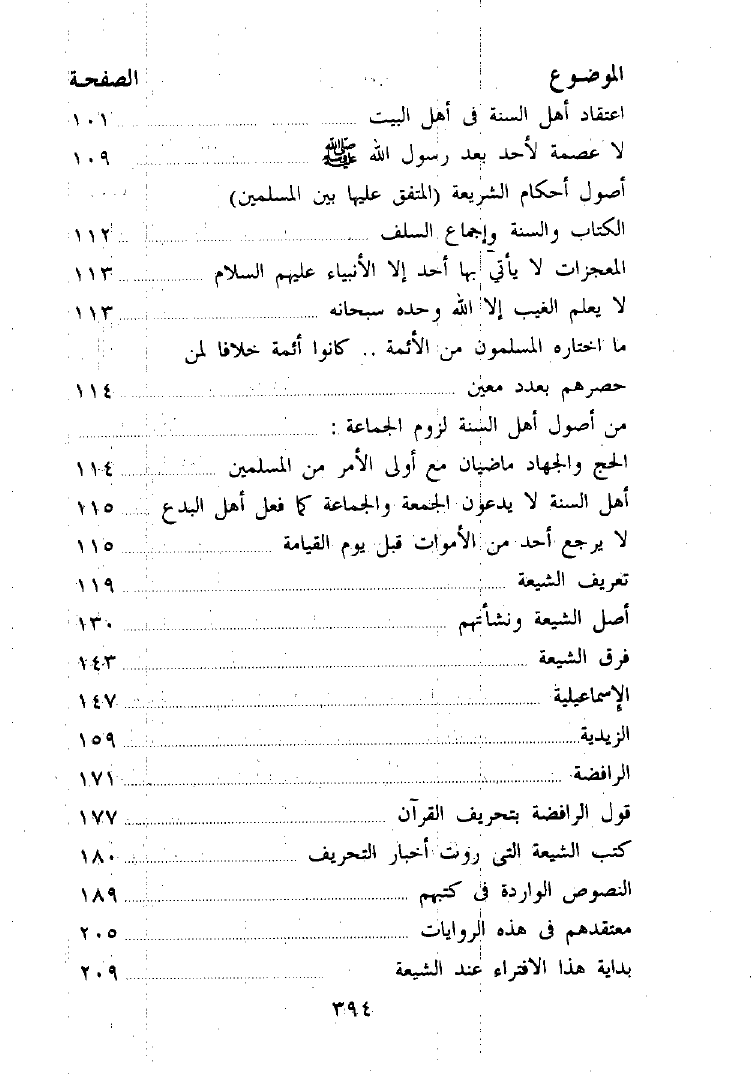 الموضوع الصفحة
اعتقاد أهل السنة فى أهل البيت ١٠١
لا عصمة لأحد بعد رسول الله ﷺ ١٠٩
أصول أحكام الشريعة (المتفق عليها بين المسلمين)
الكتاب والسنة وإجماع السلف ١١٢
المعجزات لا يأتي بها أحد إلا الأنبياء عليهم السلام ١١٣
لا يعلم الغيب إلا الله وحده سبحانه ١١٣
ما اختاره المسلمون من الأئمة .. كانوا أئمة خلافا لمن
حصرهم بعدد معين ١١٤
من أصول أهل السنة لزوم الجماعة :
الحج والجهاد ماضيان مع أولى الأمر من المسلمين ١١٤
أهل السنة لا يدعون الجمعة والجماعة كما فعل أهل البدع ١١٥
لا يرجع أحد من الأموات قبل يوم القيامة ١١٥
تعريف الشيعة ١١٩
أصل الشيعة ونشأتهم ١٣٠
فرق الشيعة ١٤٣
الإسماعيلية ١٤٧
الزيدية ١٥٩
الرافضة ١٧١
قول الرافضة بتحريف القرآن ١٧٧
كتب الشيعة التى روت أخبار التحريف ١٨٠
النصوص الواردة فى كتبهم ١٨٩
معتقدهم فى هذه الروايات ٢٠٥
بداية هذا الافتراء عند الشيعة ٢٠٩
٣٩٤